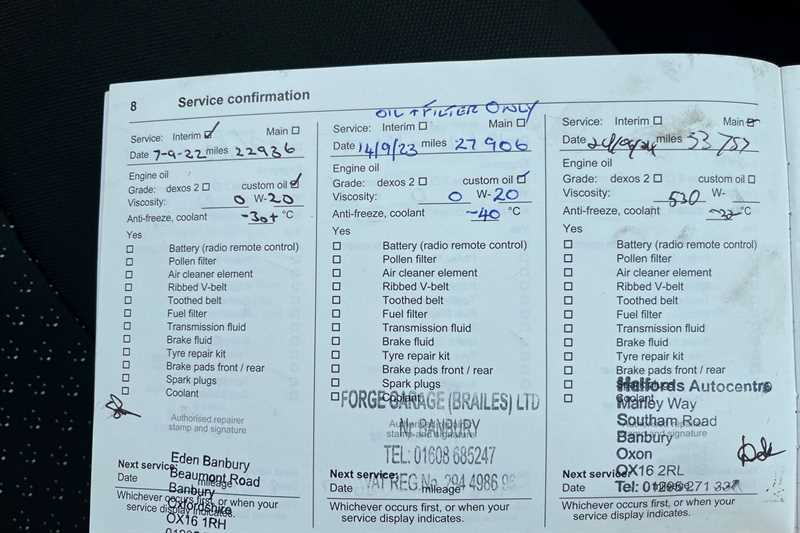 8 Service confirmation
Service: Interim Main
Date 7-9-22 miles 22936
Engine oil
Grade: dexos 2 custom oil
Viscosity: 0 W-20
Anti-freeze, coolant -30+ °C
Yes
Battery (radio remote control)
Pollen filter
Air cleaner element
Ribbed V-belt
Toothed belt
Fuel filter
Transmission fluid
Brake fluid
Tyre repair kit
Brake pads front / rear
Spark plugs
Coolant
Authorised repairer
stamp and signature
Eden Banbury
Beaumont Road
Banbury
Oxfordshire
OX16 1RH
Next service:
Date mileage
Whichever occurs first, or when your
service display indicates.
OIL + FILTER ONLY
Service: Interim Main
Date 14/9/23 miles 27906
Engine oil
Grade: dexos 2 custom oil
Viscosity: 0 W-20
Anti-freeze, coolant -40 °C
Yes
Battery (radio remote control)
Pollen filter
Air cleaner element
Ribbed V-belt
Toothed belt
Fuel filter
Transmission fluid
Brake fluid
Tyre repair kit
Brake pads front / rear
Spark plugs
Coolant
stamp and signature
FORGE GARAGE (BRAILES) LTD
Nr BANBURY
TEL: 01608 685247
VAT REG No. 294 4986 96
Next service:
Date mileage
Whichever occurs first, or when your
service display indicates.
Service: Interim Main
Date miles 33757
Engine oil
Grade: dexos 2 custom oil
Viscosity: 530 W-
Anti-freeze, coolant °C
Yes
Battery (radio remote control)
Pollen filter
Air cleaner element
Ribbed V-belt
Toothed belt
Fuel filter
Transmission fluid
Brake fluid
Tyre repair kit
Brake pads front / rear
Halfords Autocentre
Marley Way
Southam Road
stamp and signature
Banbury
Oxon
OX16 2RL
Tel: 01295 271
Next service:
Date
Whichever occurs first, or when your
service display indicates.